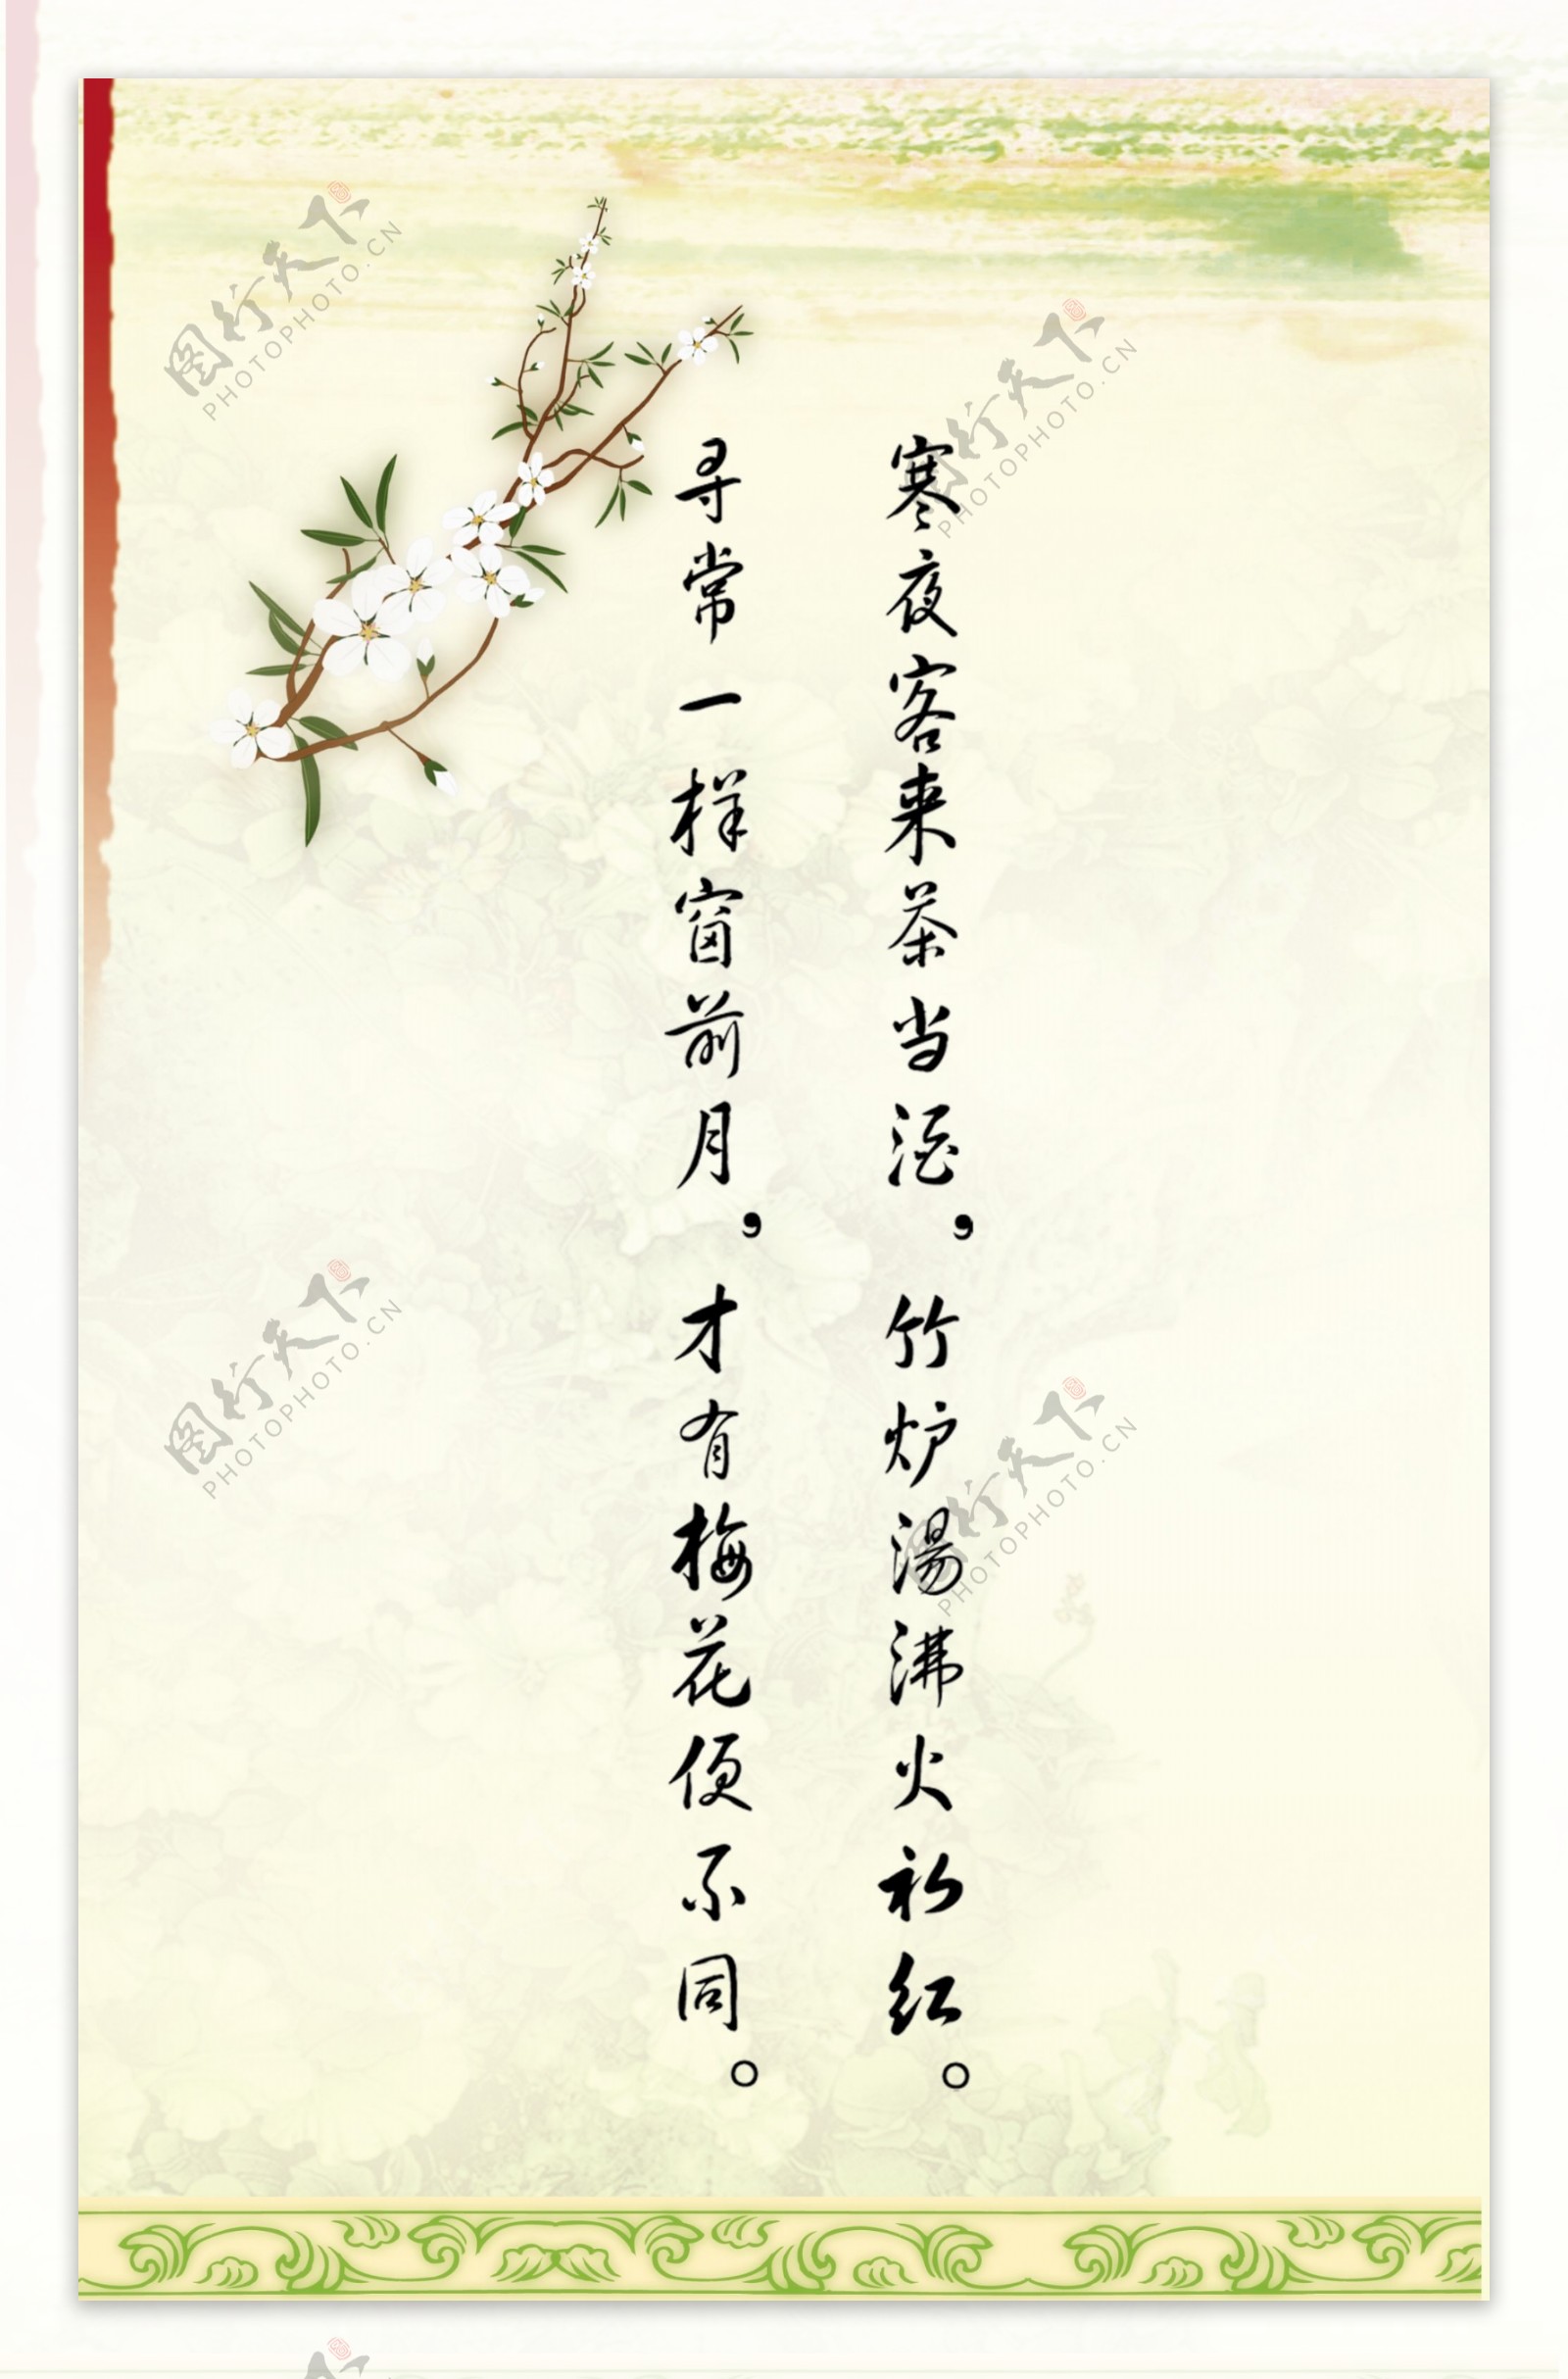 寒夜客来茶当酒，竹炉湯沸火初红。
寻常一样窗前月，才有梅花便不同。
图行天下
PHOTOPHOTO.CN
图行天下
PHOTOPHOTO.CN
图行天下
PHOTOPHOTO.CN
图行天下
PHOTOPHOTO.CN